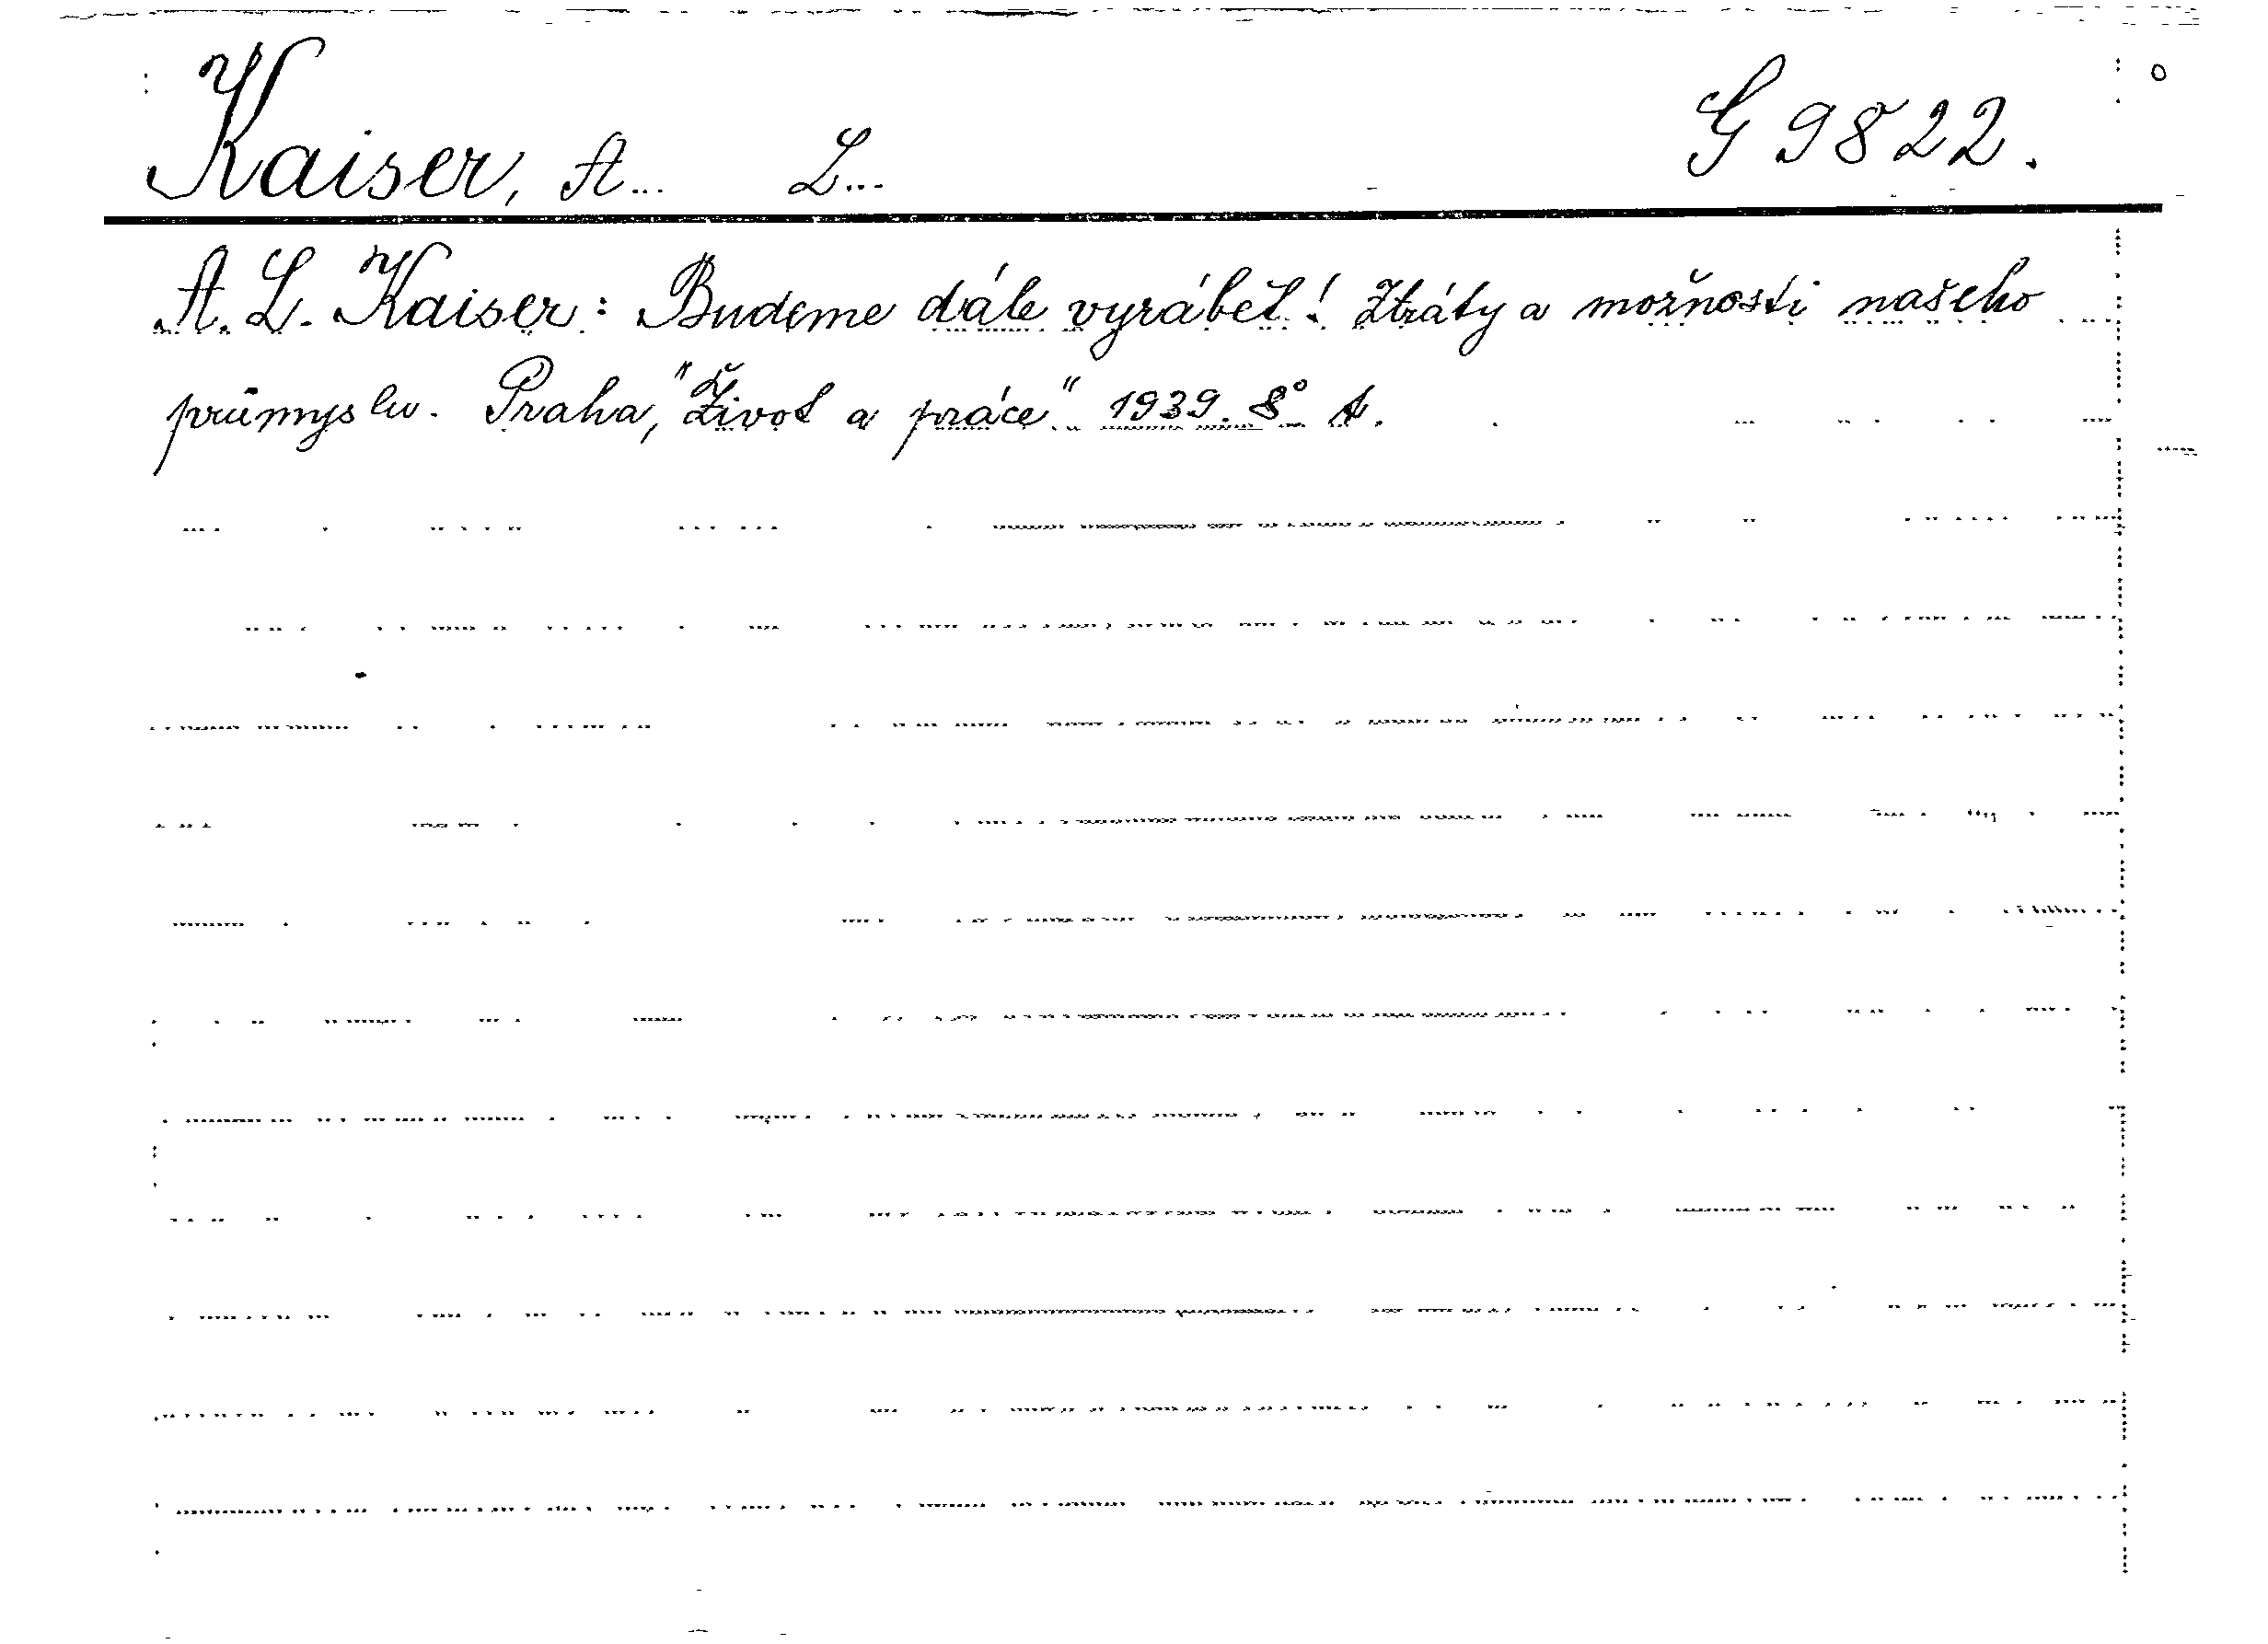 Kaiser, A... L... G 9822.
A. L. Kaiser: Budeme dále vyrábět! Ztráty a možnosti našeho
průmyslu. Praha, "Život a práce" 1939. 8° A.